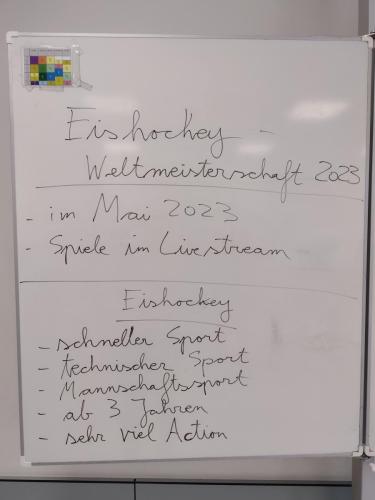 Eishockey -
Weltmeisterschaft 2023
- im Mai 2023
- Spiele im Livestream
Eishockey
- schneller Sport
- technischer Sport
- Mannschaftssport
- ab 3 Jahren
- sehr viel Action